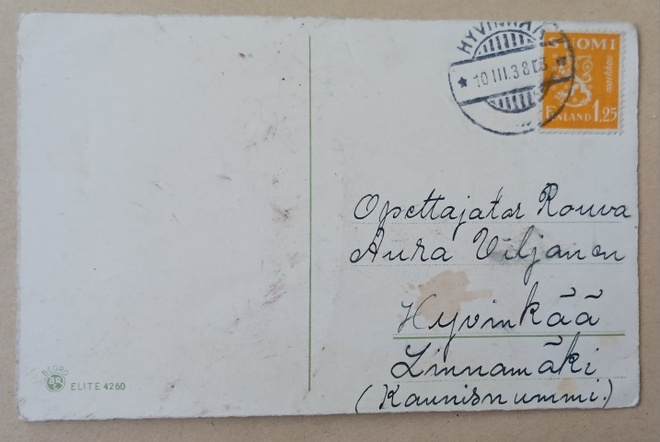 HYVINKÄÄ
10 III.38
SUOMI
markkaa
FINLAND 1,25
Opettajatar Rouva
Aura Viljanen
Hyvinkää
Linnamäki
(Kaunisnummi.)
ELITE 4260